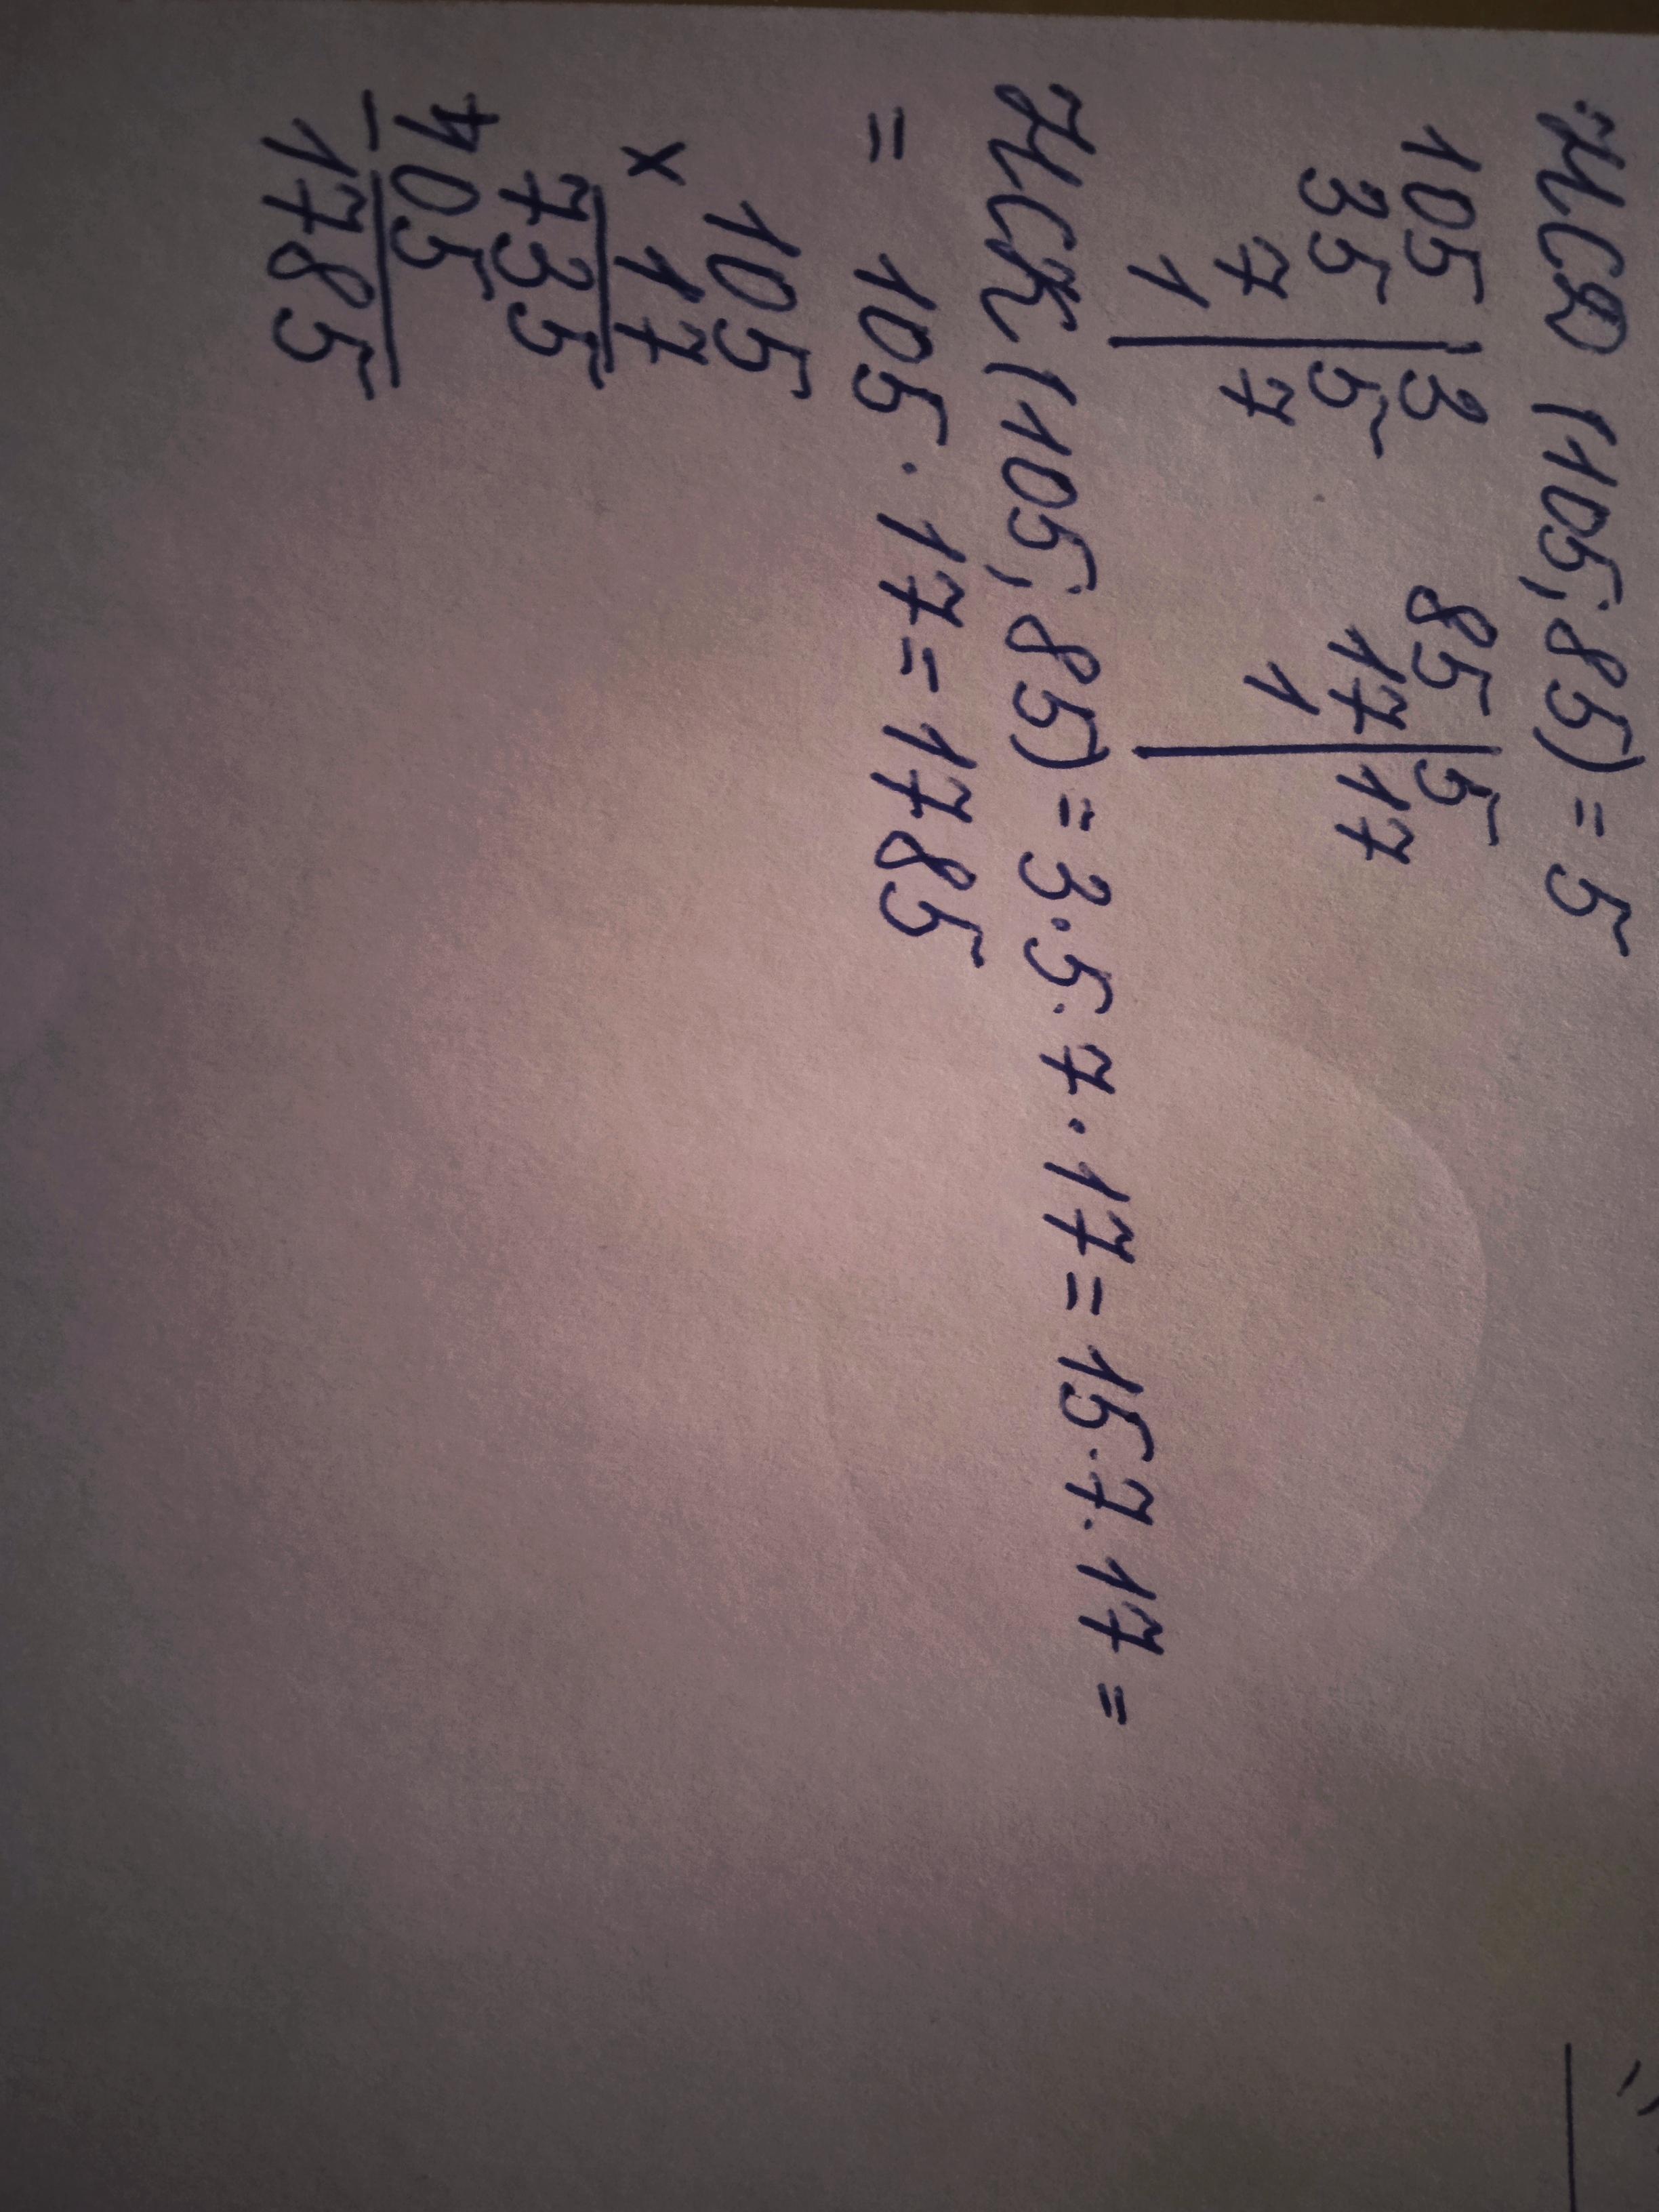 НСД (105, 85) = 5
105 | 3 85 | 5
35 | 5 17 | 17
7 | 7 1
1
НСК (105, 85) = 3 · 5 · 7 · 17 = 15 · 7 · 17 =
= 105 · 17 = 1785
105
× 17
735
+ 105
1785